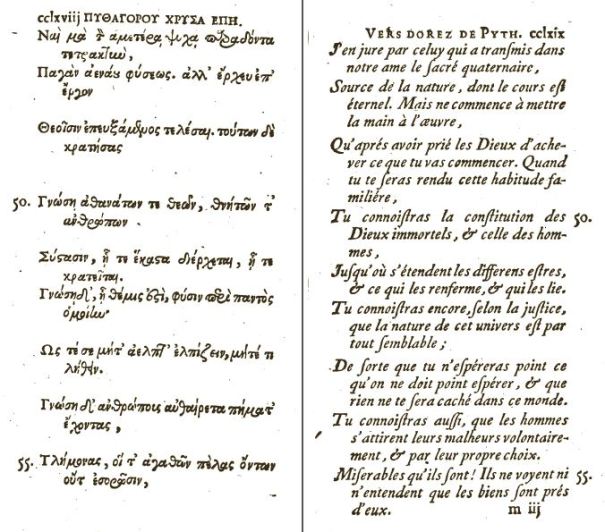 cclxviij ΠΥΘΑΓΟΡΟΥ ΧΡΥΣΑ ΕΠΗ.
Ναὶ μὰ τὸν ἀμετέρᾳ ψυχᾷ παραδόντα
τετρακτὺν,
Παγὰν ἀενάου φύσεως. ἀλλ' ἔρχευ ἐπ'
ἔργον
Θεοῖσιν ἐπευξάμενος τελέσαι. τούτων δὲ
κρατήσας
50. Γνώσῃ ἀθανάτων τε θεῶν, θνητῶν τ'
ἀνθρώπων
Σύστασιν, ᾗ τε ἕκαστα διέρχεται, ᾗ τε
κρατεῖται.
Γνώσῃ δ', ᾗ θέμις ἐστὶ, φύσιν περὶ παντὸς
ὁμοίην
Ὡς τέ σε μήτ' ἀελπῆ' ἐλπίζειν, μήτέ τι
λήθειν.
Γνώσῃ δ' ἀνθρώπους αὐθαίρετα πήματ'
ἔχοντας,
55. Τλήμονας, οἵ τ' ἀγαθῶν πέλας ὄντων
οὔτ' ἐσορῶσιν,
VERS DOREZ DE PYTH. cclxix
J'en jure par celuy qui a tranſmis dans
notre ame le ſacré quaternaire,
Source de la nature, dont le cours eſt
éternel. Mais ne commence à mettre
la main à l'œuvre,
Qu'aprés avoir prié les Dieux d'ache-
ver ce que tu vas commencer. Quand
tu te ſeras rendu cette habitude fa-
miliére,
Tu connoiſtras la conſtitution des 50.
Dieux immortels, & celle des hom-
mes,
Juſqu'où s'étendent les differens eſtres,
& ce qui les renferme, & qui les lie.
Tu connoiſtras encore, ſelon la juſtice,
que la nature de cet univers eſt par
tout ſemblable ;
De ſorte que tu n'eſpéreras point ce
qu'on ne doit point eſpérer, & que
rien ne te ſera caché dans ce monde.
Tu connoiſtras auſſi, que les hommes
s'attirent leurs malheurs volontaire-
ment, & par leur propre choix.
Miſerables qu'ils ſont! Ils ne voyent ni 55.
n'entendent que les biens ſont prés
d'eux.
m iij